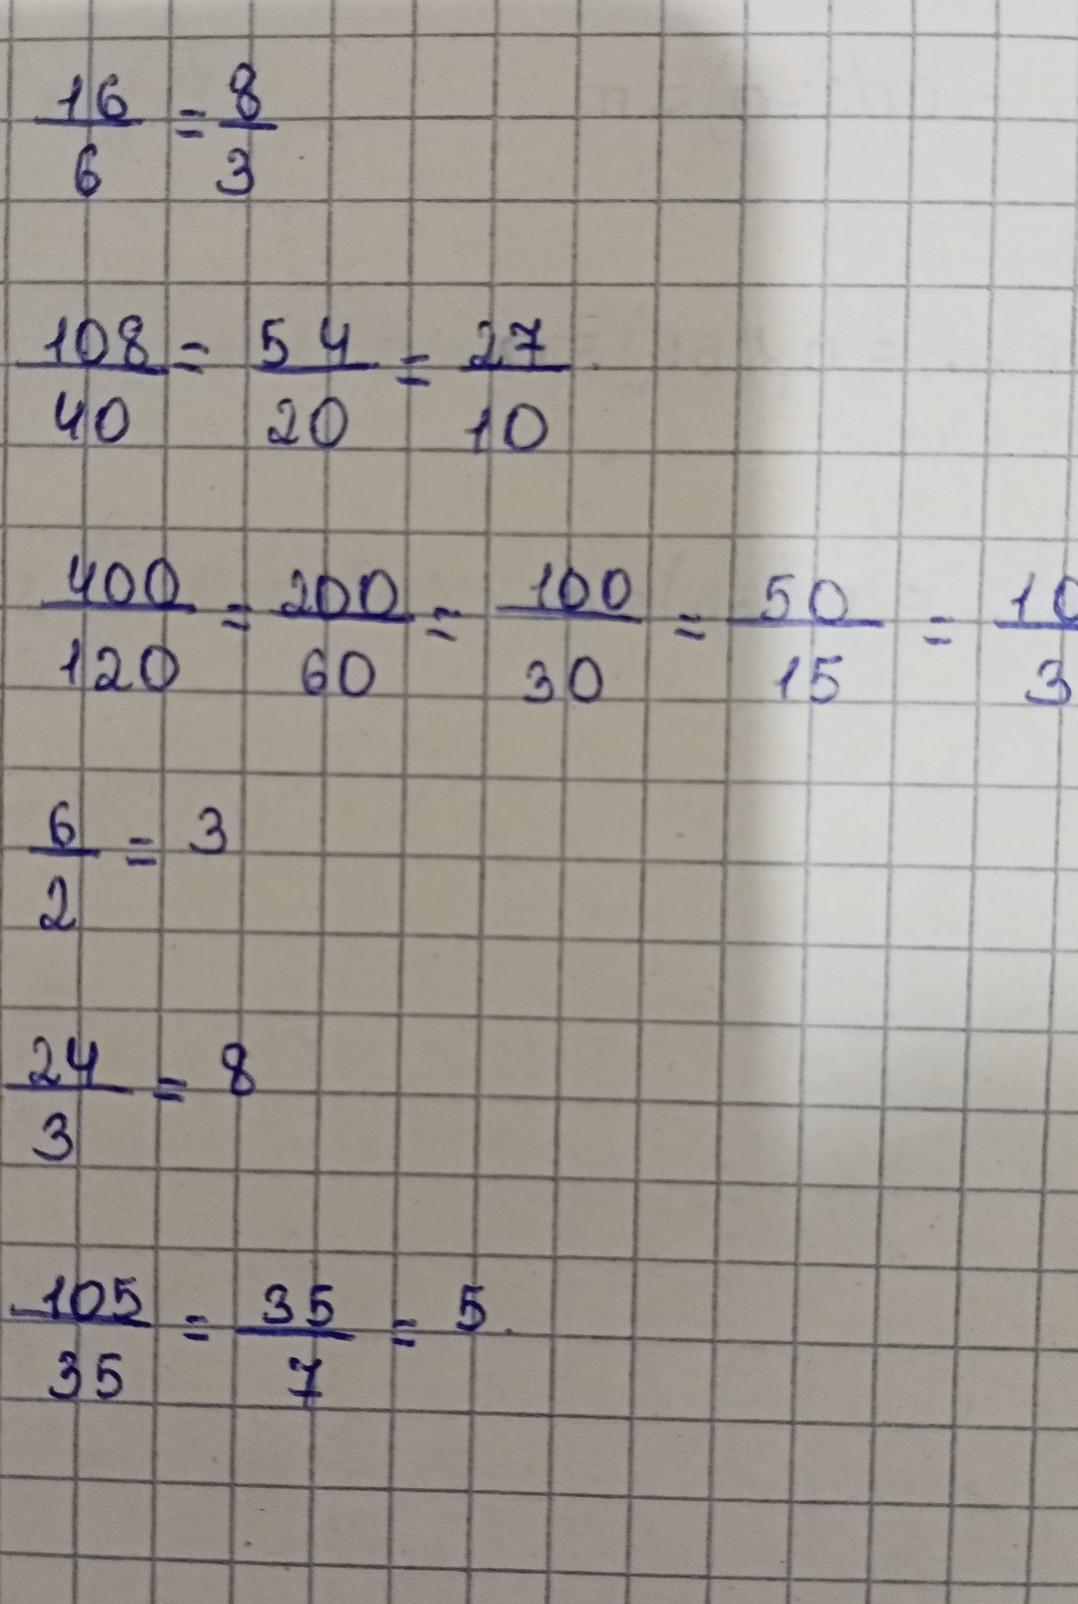 16/6 = 8/3
108/40 = 54/20 = 27/10
400/120 = 200/60 = 100/30 = 50/15 = 10/3
6/2 = 3
24/3 = 8
105/35 = 35/7 = 5